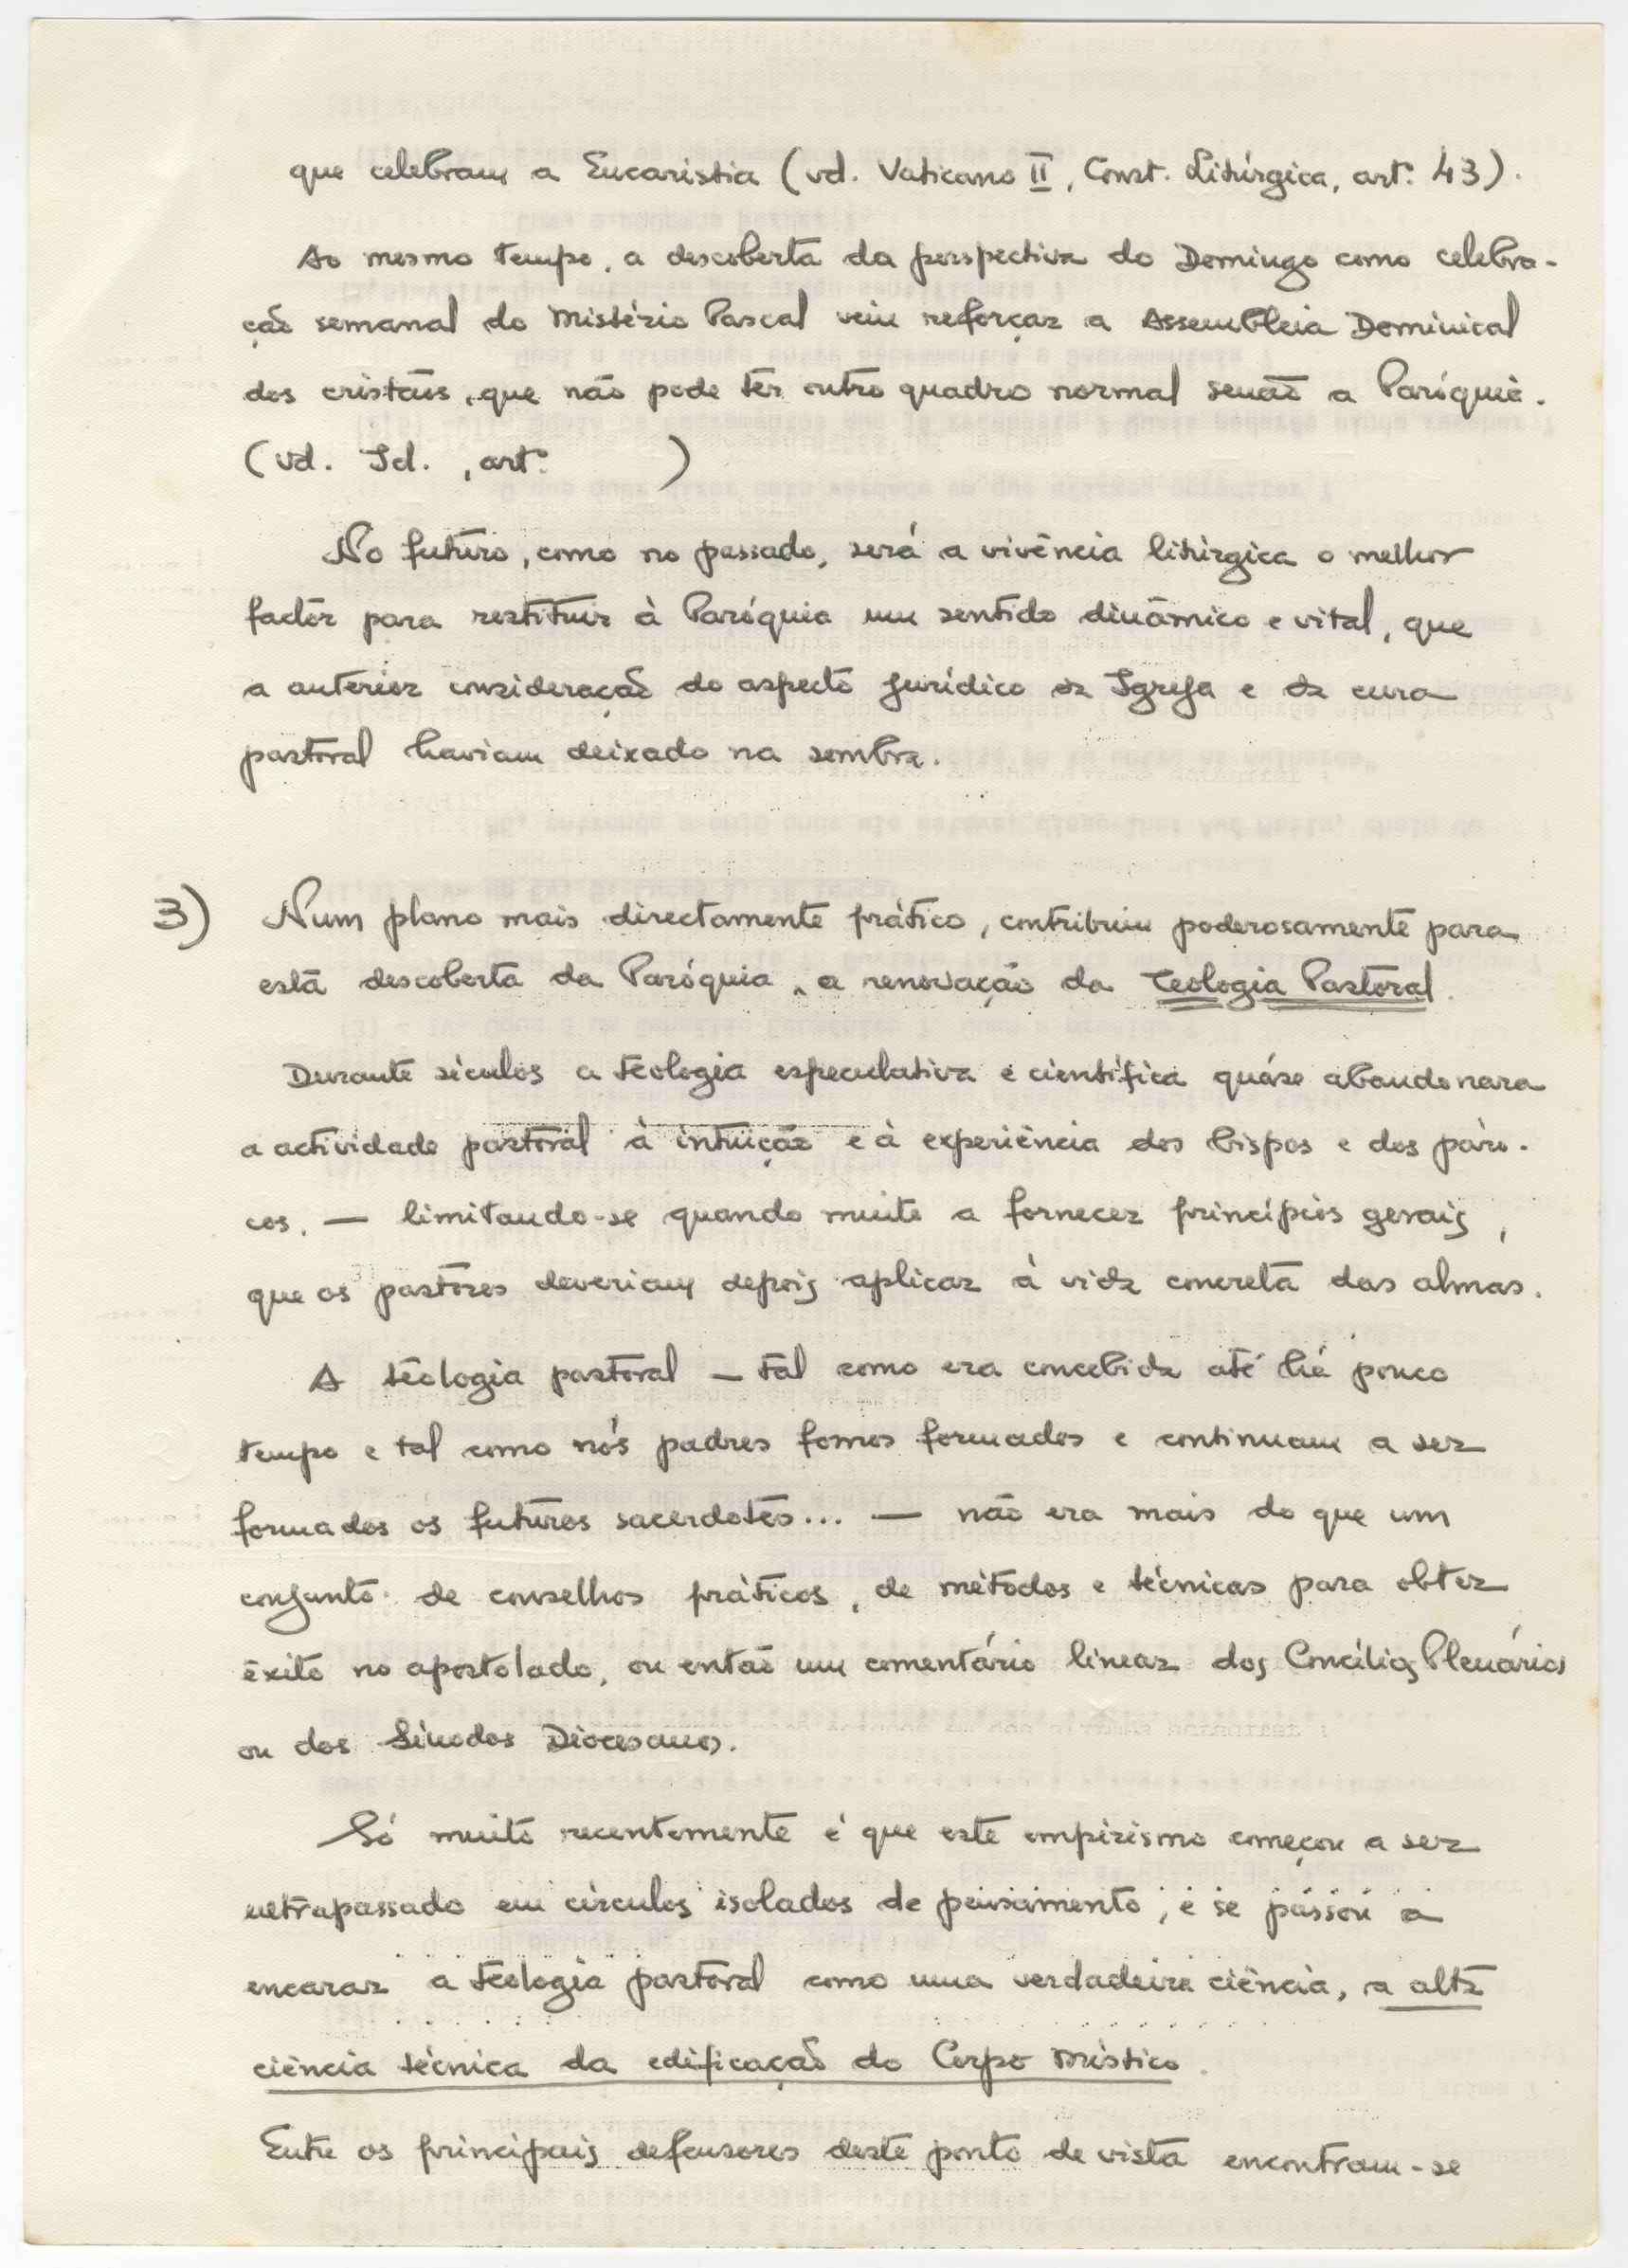 que celebram a Eucaristia (vd. Vaticano II, Const. Litúrgica, art.º 43).
Ao mesmo tempo, a descoberta da perspectiva do Domingo como celebra-
ção semanal do Mistério Pascal veiu reforçar a Assembleia Dominical
dos cristãos, que não pode ter outro quadro normal senão a Paróquia.
(vd. Id. , art.º )
No futuro, como no passado, será a vivência litúrgica o melhor
factor para restituir à Paróquia um sentido dinâmico e vital, que
a anterior consideração do aspecto jurídico da Igreja e da cura
pastoral haviam deixado na sombra.
3) Num plano mais directamente prático, contribuiu poderosamente para
esta descoberta da Paróquia, a renovação da Teologia Pastoral.
Durante séculos a teologia especulativa e científica quáse abandonara
a actividade pastoral à intuição e à experiência dos bispos e dos páro-
cos, — limitando-se quando muito a fornecer princípios gerais,
que os pastores deveriam depois aplicar à vida concreta das almas.
A teologia pastoral — tal como era concebida até há pouco
tempo e tal como nós padres fomos formados e continuam a ser
formados os futuros sacerdotes... — não era mais do que um
conjunto de conselhos práticos, de métodos e técnicas para obter
êxito no apostolado, ou então um comentário linear dos Concílios Plenários
ou dos Sínodos Diocesanos.
Só muito recentemente é que este empirismo começou a ser
ultrapassado em círculos isolados de pensamento, e se passou a
encarar a teologia pastoral como uma verdadeira ciência, a alta
ciência técnica da edificação do Corpo Místico.
Entre os principais defensores deste ponto de vista encontram-se